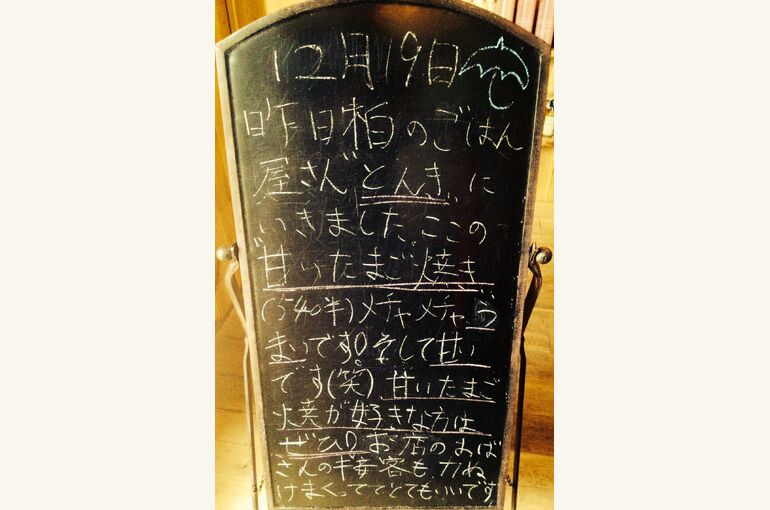 12月19日
昨日柏のごはん
屋さん"とんき"に
いきました。ここの
"甘いたまご焼き"
(540半)メチャメチャう
まいです!そして甘い
です(笑)甘いたまご
焼が好きな方は
ぜひ!お店のおば
さんの接客も力ぬ
けまくっててとてもいいです